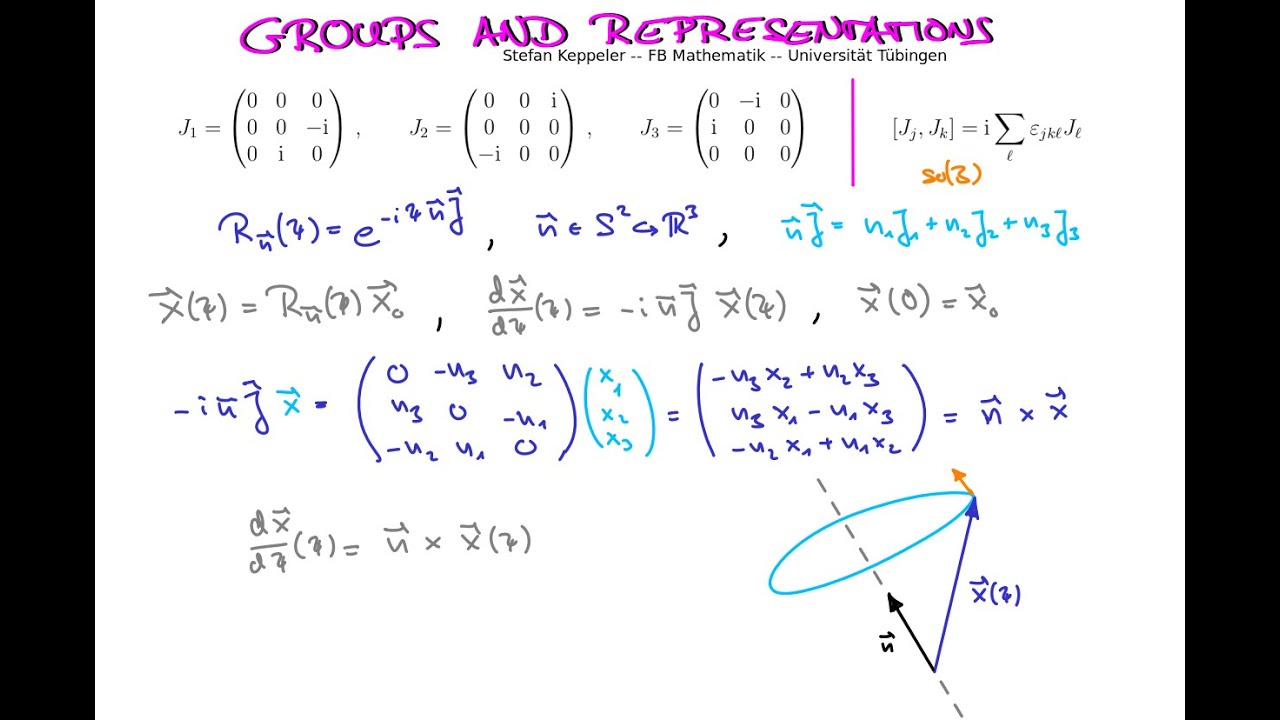 GROUPS AND REPRESENTATIONS
Stefan Keppeler -- FB Mathematik -- Universität Tübingen
J₁ = (0 0 0; 0 0 −i; 0 i 0) , J₂ = (0 0 i; 0 0 0; −i 0 0) , J₃ = (0 −i 0; i 0 0; 0 0 0) [J_j, J_k] = i ∑_ℓ ε_{jkℓ} J_ℓ
so(3)
R_{n⃗}(ψ) = e^{−iψ n⃗ J⃗} , n⃗ ∈ S² ↪ ℝ³ , n⃗ J⃗ = n₁J₁ + n₂J₂ + n₃J₃
x⃗(ψ) = R_{n⃗}(ψ) x⃗₀ , dx⃗/dψ (ψ) = −i n⃗ J⃗ x⃗(ψ) , x⃗(0) = x⃗₀
−i n⃗ J⃗ x⃗ = (0 −n₃ n₂; n₃ 0 −n₁; −n₂ n₁ 0) (x₁; x₂; x₃) = (−n₃x₂ + n₂x₃; n₃x₁ − n₁x₃; −n₂x₁ + n₁x₂) = n⃗ × x⃗
dx⃗/dψ (ψ) = n⃗ × x⃗(ψ)
x⃗(ψ)
n⃗